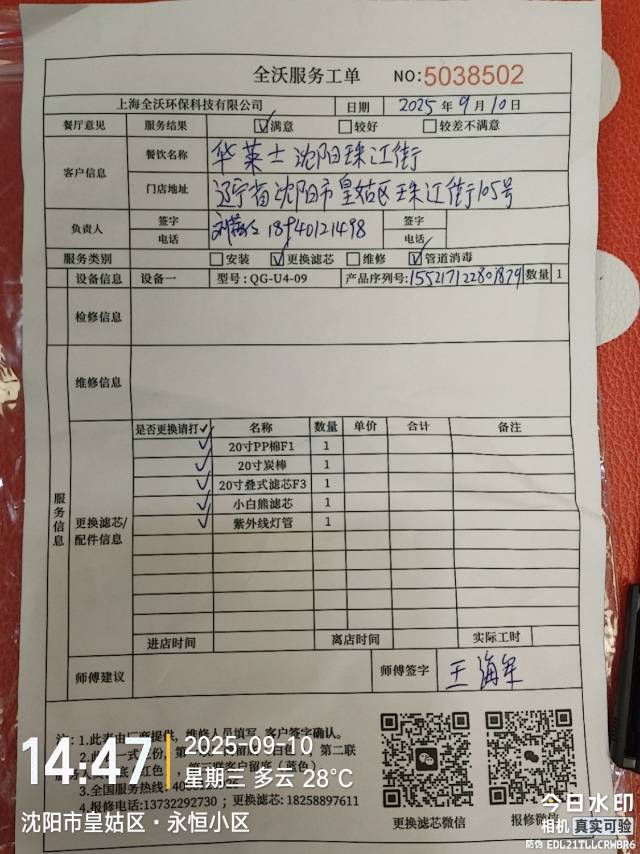 全沃服务工单 NO:5038502
上海全沃环保科技有限公司 日期 2025年9月10日
餐厅意见 服务结果 ☑满意 □较好 □较差不满意
客户信息 餐饮名称 华莱士沈阳珠江街
门店地址 辽宁省沈阳市皇姑区珠江街105号
负责人 签字 签字
电话 18940121498 电话
服务类别 □安装 ☑更换滤芯 □维修 ☑管道消毒
设备信息 设备一 型号:QG-U4-09 产品序列号:155217122801879 数量 1
检修信息
维修信息
服务信息
更换滤芯/配件信息
是否更换请打✓ 名称 数量 单价 合计 备注
✓ 20寸PP棉F1 1
✓ 20寸炭棒 1
✓ 20寸叠式滤芯F3 1
✓ 小白熊滤芯 1
✓ 紫外线灯管 1
进店时间 离店时间 实际工时
师傅建议 师傅签字 王海军
注:1.此表由厂商提供,维修人员填写,客户签字确认。
3.全国服务热线:
4.报修电话:13732292730;更换滤芯:18258897611
更换滤芯微信 报修微信
14:47 2025-09-10
星期三 多云 28℃
沈阳市皇姑区·永恒小区
今日水印
相机 真实可验
防伪 EDL21TLLCRWBR6